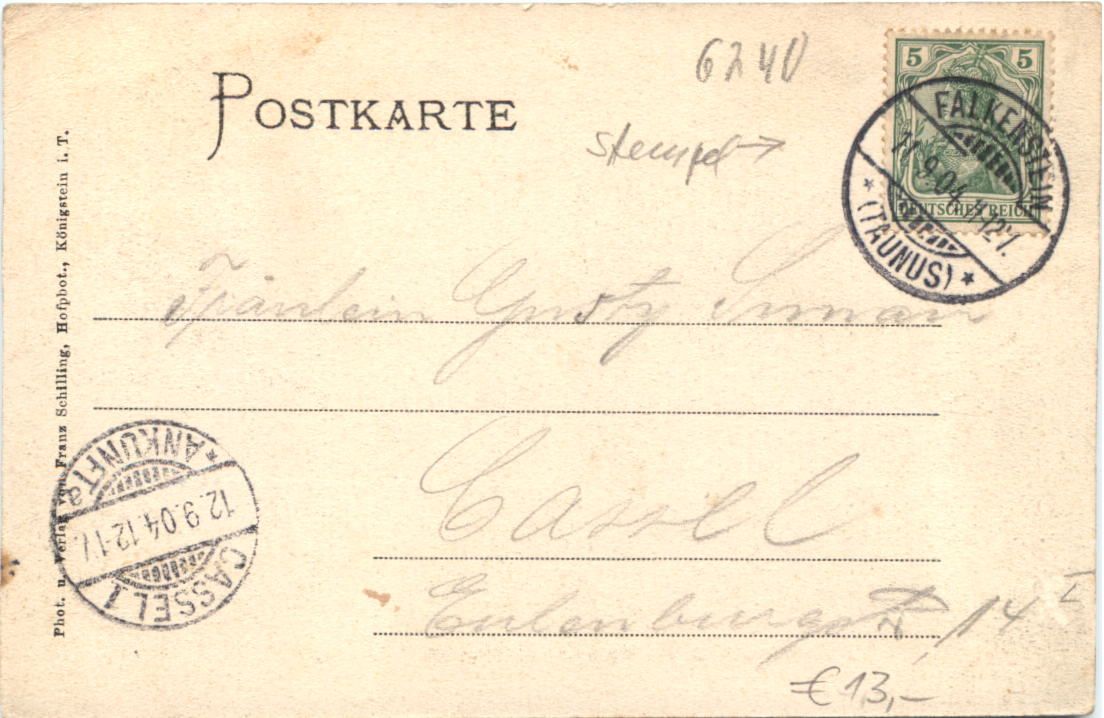 POSTKARTE
6240
Stempel →
5 5
DEUTSCHES REICH
FALKENSTEIN
11.9.04. 11-12V.
* (TAUNUS) *
Fräulein Gusty
Cassel
Eulenburgstr. 14 I
€ 13,-
* ANKUNFT a
12.9.04.12-1V.
CASSEL 1
Phot. u. Verlag von Franz Schilling, Hofphot., Königstein i. T.